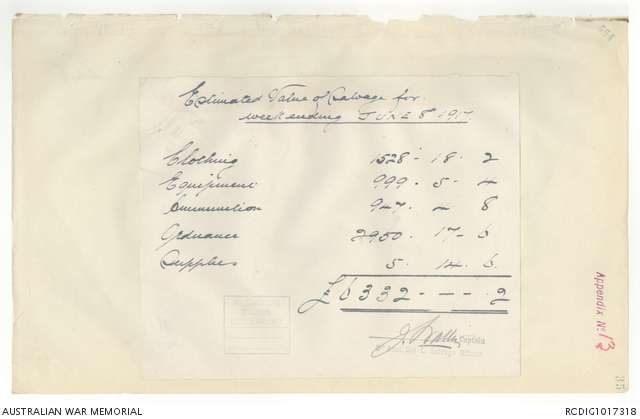 554
Estimated Value of Salvage for
week ending JUNE 8th 1917
Clothing 1528 - 18 - 2
Equipment 999 - 5 - 4
Ammunition 947 - 4 - 8
Ordnance 2850 - 17 - 6
Supplies 5 - 14 - 6
£6332 - — - 2
Captain
Salvage Officer
Appendix No 13
35
AUSTRALIAN WAR MEMORIAL
RCDIG1017318